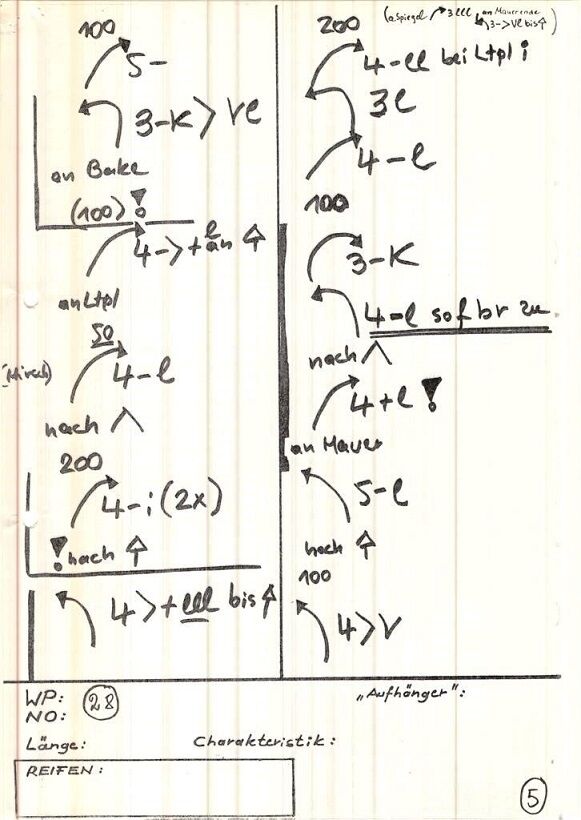 100
5-
3-K>vl
an Bake
(100) !
4->+l an
an Ltpl
50
(Kirch)
4-l
nach
200
4-i(2x)
! nach
4>+lll bis
200
4-ll bei Ltpl i
3l
4-l
100
3-K
4=l sof br zu
nach
4+l !
an Mauer
5-l
nach
100
4>V
WP: 28
NO:
„Aufhänger":
Länge:
Charakteristik:
REIFEN:
5